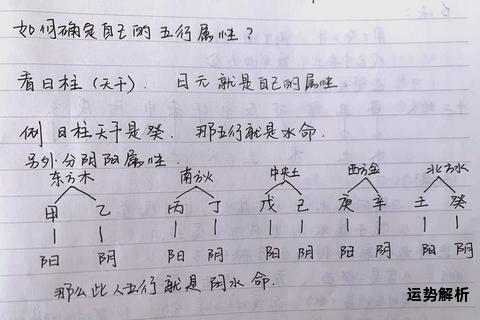 如何确定自己的五行属性？
看日柱（天干）. 日元就是自己的属性.
例 日柱天干是癸. 那五行就是水命.
另外分阴阳属性.
东方木 南方火 中央土 西方金 北方水
甲 乙 丙 丁 戊 己 庚 辛 壬 癸
阳 阴 阳 阴 阳 阴 阳 阴 阳 阴
那么此人五行就是阴水命.
运势解析